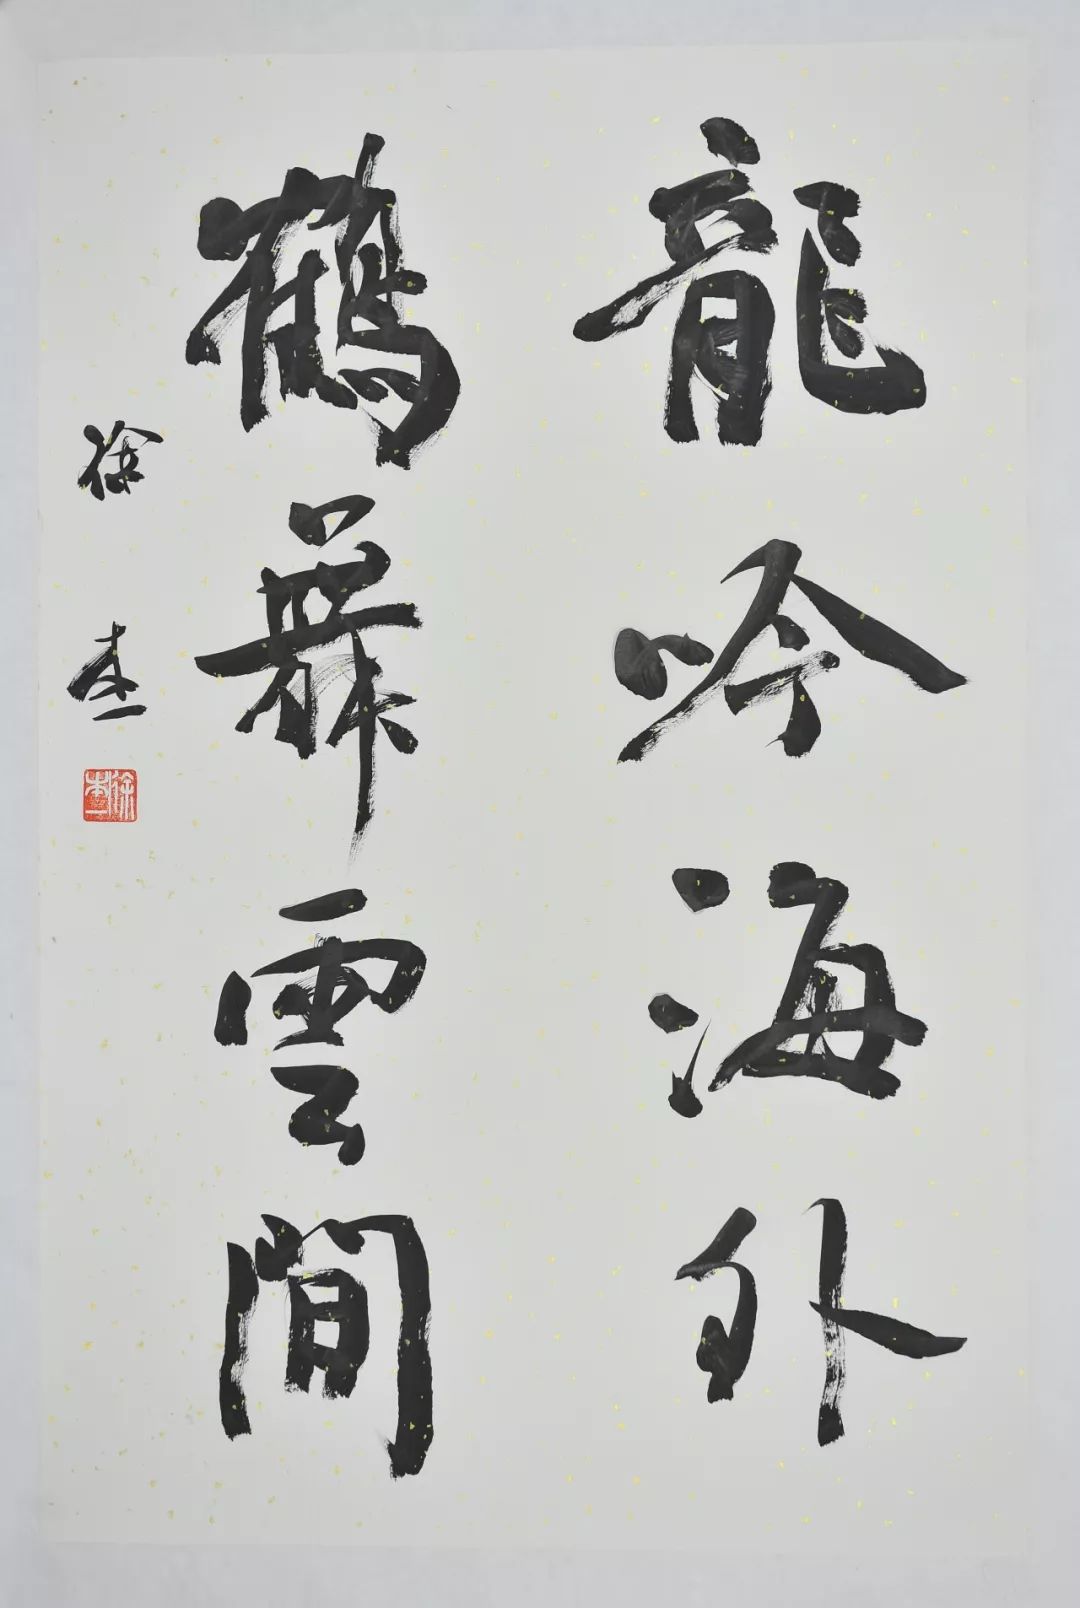 龍吟海外
鶴舞雲間
徐杰
徐杰